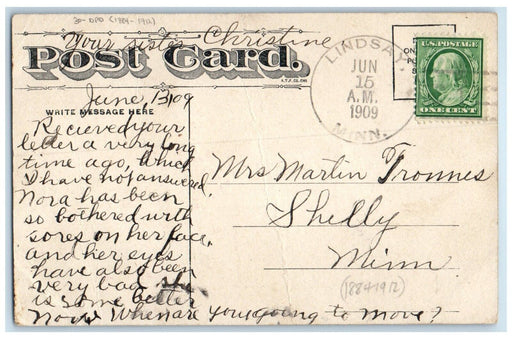 30- DPO (1884-1912)
Your sister Christine
Post Card.
A.T.F. Co.
June, 13, 09
WRITE MESSAGE HERE
Recieved your
letter a very long
time ago, which
I have not answered.
Nora has been
so bothered with
sores on her face,
and her eyes
have also been
very bad she
is some better
now. When are you going to move?
LINDSAY,
JUN
15
A.M.
1909
MINN.
U.S. POSTAGE
ONE CENT
Mrs Martin Tronnes
Shelly
Minn.
(1884-1912)